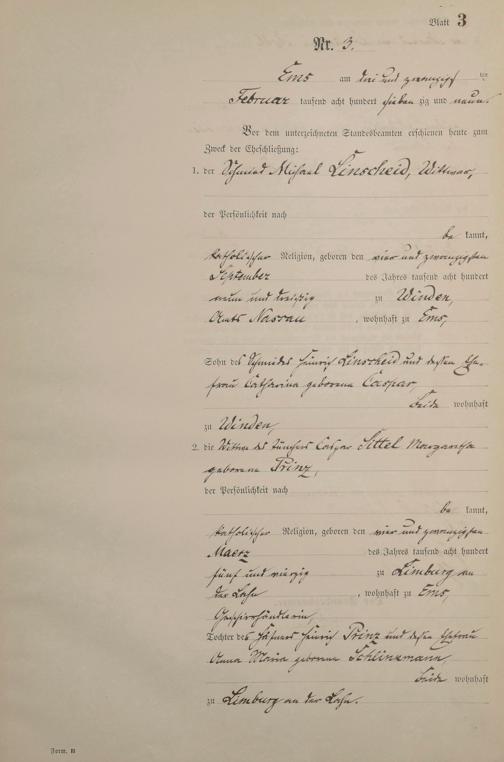 Blatt 3
Nr. 3.
Ems am drei und zwanzigsten
Februar tausend acht hundert sieben zig und neun.
Vor dem unterzeichneten Standesbeamten erschienen heute zum
Zweck der Eheschließung:
1. der Schmied Michael Linscheid, Wittwer,
der Persönlichkeit nach
be kannt,
katholischer Religion, geboren den vier und zwanzigsten
September des Jahres tausend acht hundert
neun und dreißig zu Winden,
Amts Nassau, wohnhaft zu Ems,
Sohn des Schmiedes Heinrich Linscheid und dessen Ehe-
frau Catharina geborene Caspar,
beide wohnhaft
zu Winden,
2. die Wittwe des Tünchers Caspar Sittel Margaretha
geborene Prinz,
der Persönlichkeit nach
be kannt,
katholischer Religion, geboren den vier und zwanzigsten
Maerz des Jahres tausend acht hundert
fünf und vierzig zu Limburg an
der Lahn, wohnhaft zu Ems,
Geschirrhändlerin,
Tochter des Häfners Heinrich Prinz und dessen Ehefrau
Anna Maria geborene Schlinzmann,
beide wohnhaft
zu Limburg an der Lahn.
Form. B